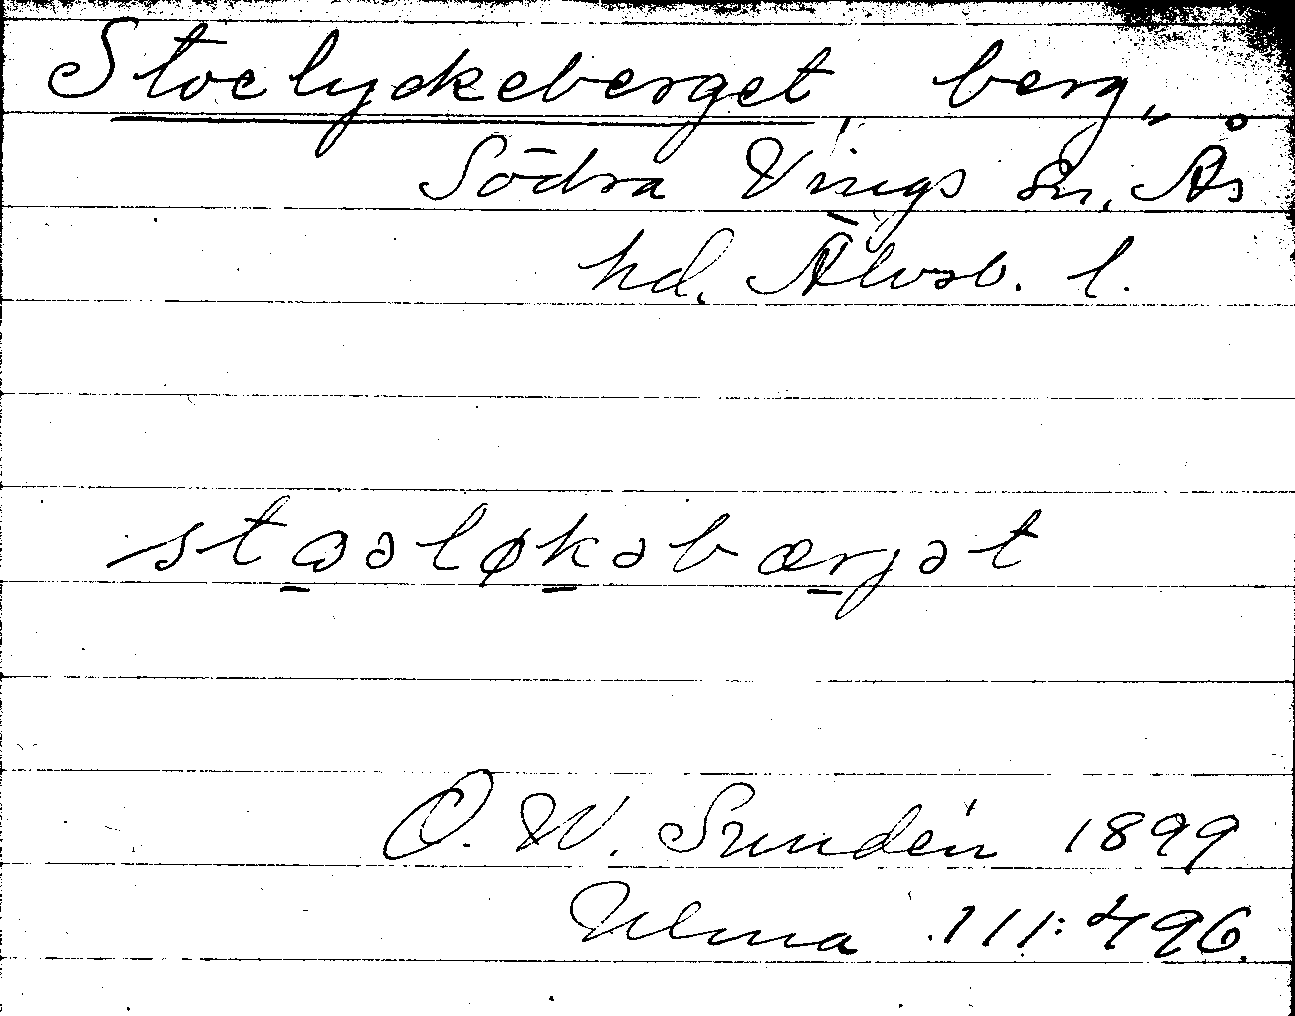 Stoelyckeberget, berg,
Södra Vings sn, Ås
hd. Älvsb. l.
stɷəløkəbærjət
O. W. Sundén 1899
Ulma 111:496.